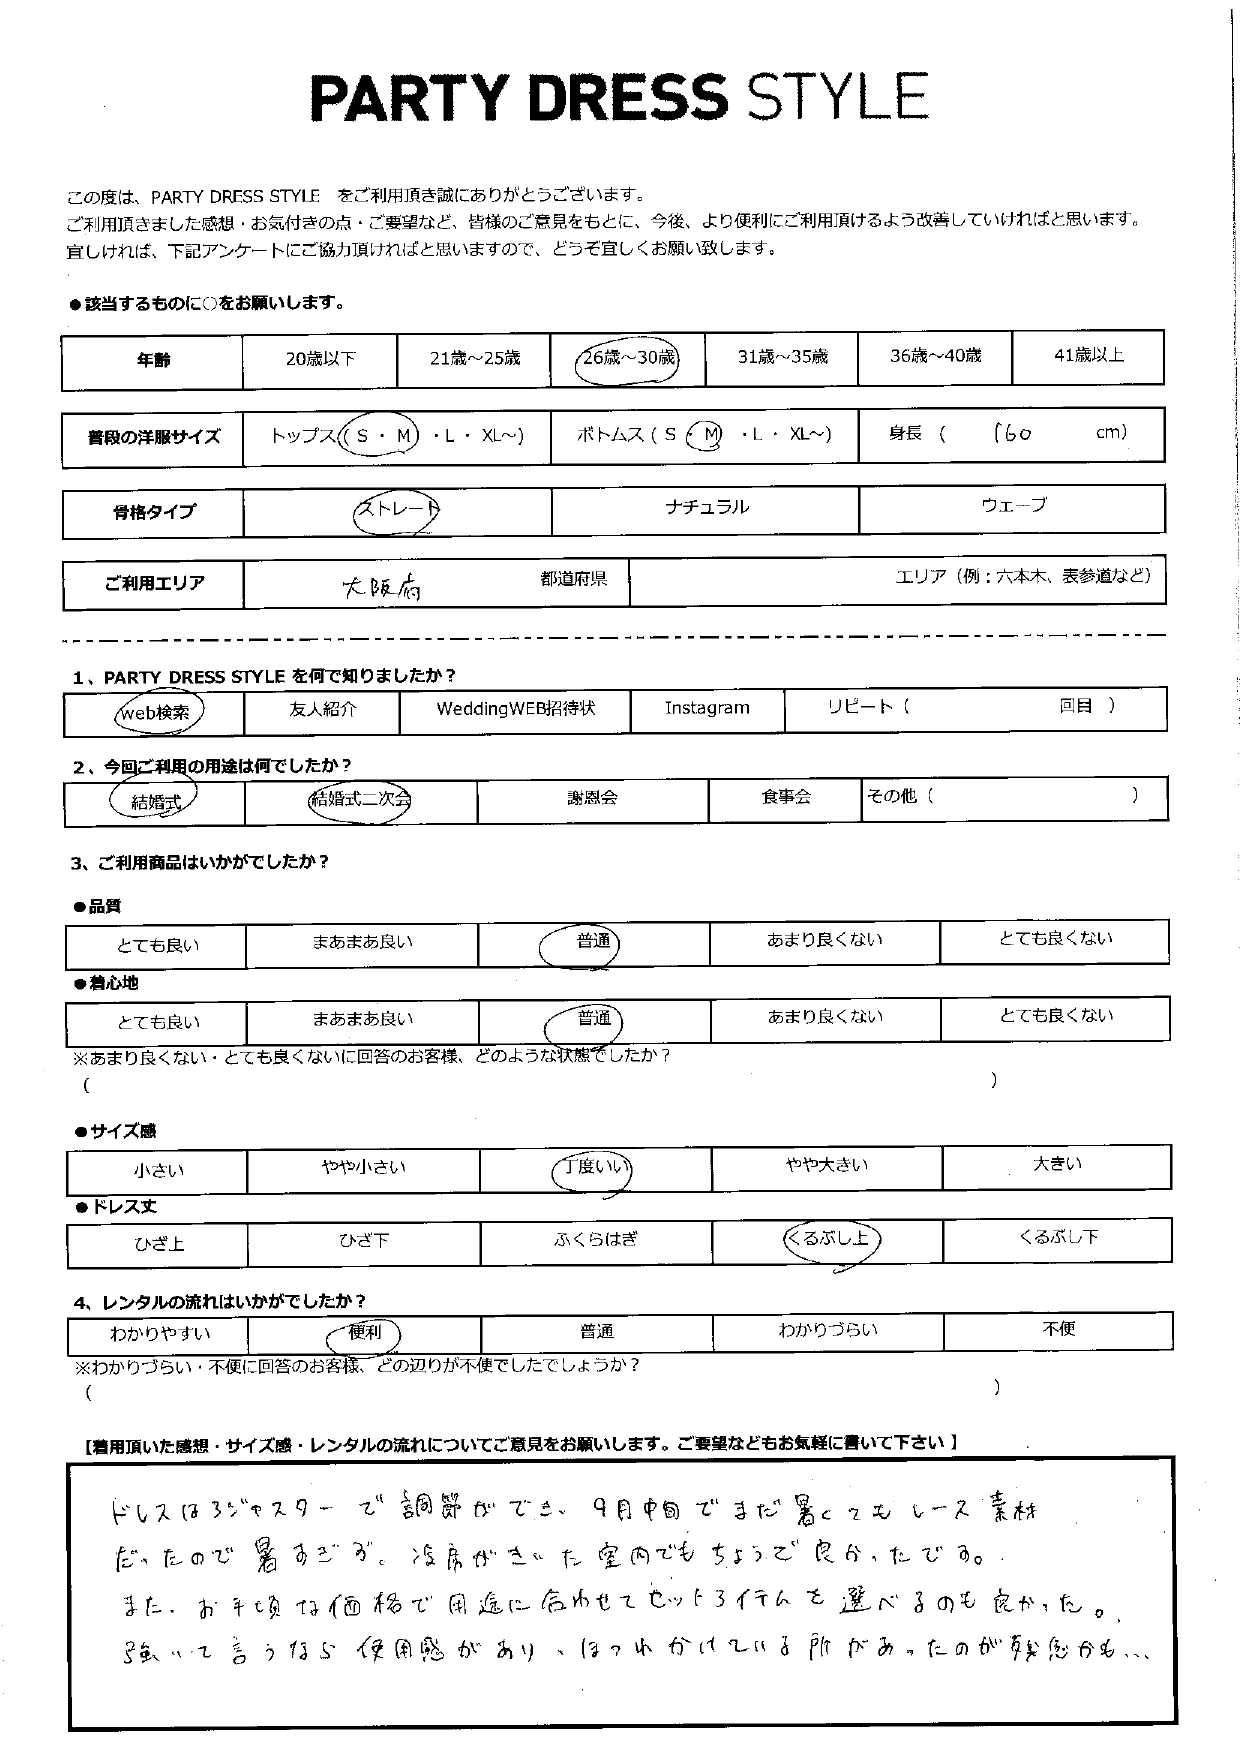 PARTY DRESS STYLE
この度は、PARTY DRESS STYLE をご利用頂き誠にありがとうございます。
ご利用頂きました感想・お気付きの点・ご要望など、皆様のご意見をもとに、今後、より便利にご利用頂けるよう改善していければと思います。
宜しければ、下記アンケートにご協力頂ければと思いますので、どうぞ宜しくお願い致します。
●該当するものに○をお願いします。
年齢 20歳以下 21歳～25歳 26歳～30歳 31歳～35歳 36歳～40歳 41歳以上
普段の洋服サイズ トップス ( S ・ M ・L ・ XL～) ボトムス ( S ・ M ・L ・ XL～) 身長 ( 160 cm)
骨格タイプ ストレート ナチュラル ウェーブ
ご利用エリア 大阪府 都道府県 エリア（例：六本木、表参道など）
1、PARTY DRESS STYLE を何で知りましたか？
web検索 友人紹介 WeddingWEB招待状 Instagram リピート（ 回目 ）
2、今回ご利用の用途は何でしたか？
結婚式 結婚式二次会 謝恩会 食事会 その他（ ）
3、ご利用商品はいかがでしたか？
●品質
とても良い まあまあ良い 普通 あまり良くない とても良くない
●着心地
とても良い まあまあ良い 普通 あまり良くない とても良くない
※あまり良くない・とても良くないに回答のお客様、どのような状態でしたか？
( )
●サイズ感
小さい やや小さい 丁度いい やや大きい 大きい
●ドレス丈
ひざ上 ひざ下 ふくらはぎ くるぶし上 くるぶし下
4、レンタルの流れはいかがでしたか？
わかりやすい 便利 普通 わかりづらい 不便
※わかりづらい・不便に回答のお客様、どの辺りが不便でしたでしょうか？
( )
【着用頂いた感想・サイズ感・レンタルの流れについてご意見をお願いします。ご要望などもお気軽に書いて下さい 】
ドレスはアジャスターで調節ができ、9月中旬でまだ暑くてもレース素材
だったので暑すぎず。冷房がきいた室内でもちょうど良かったです。
また、お手頃な価格で用途に合わせてセットアイテムを選べるのも良かった。
強いて言うなら使用感があり、ほつれかけている所があったのが残念かも...